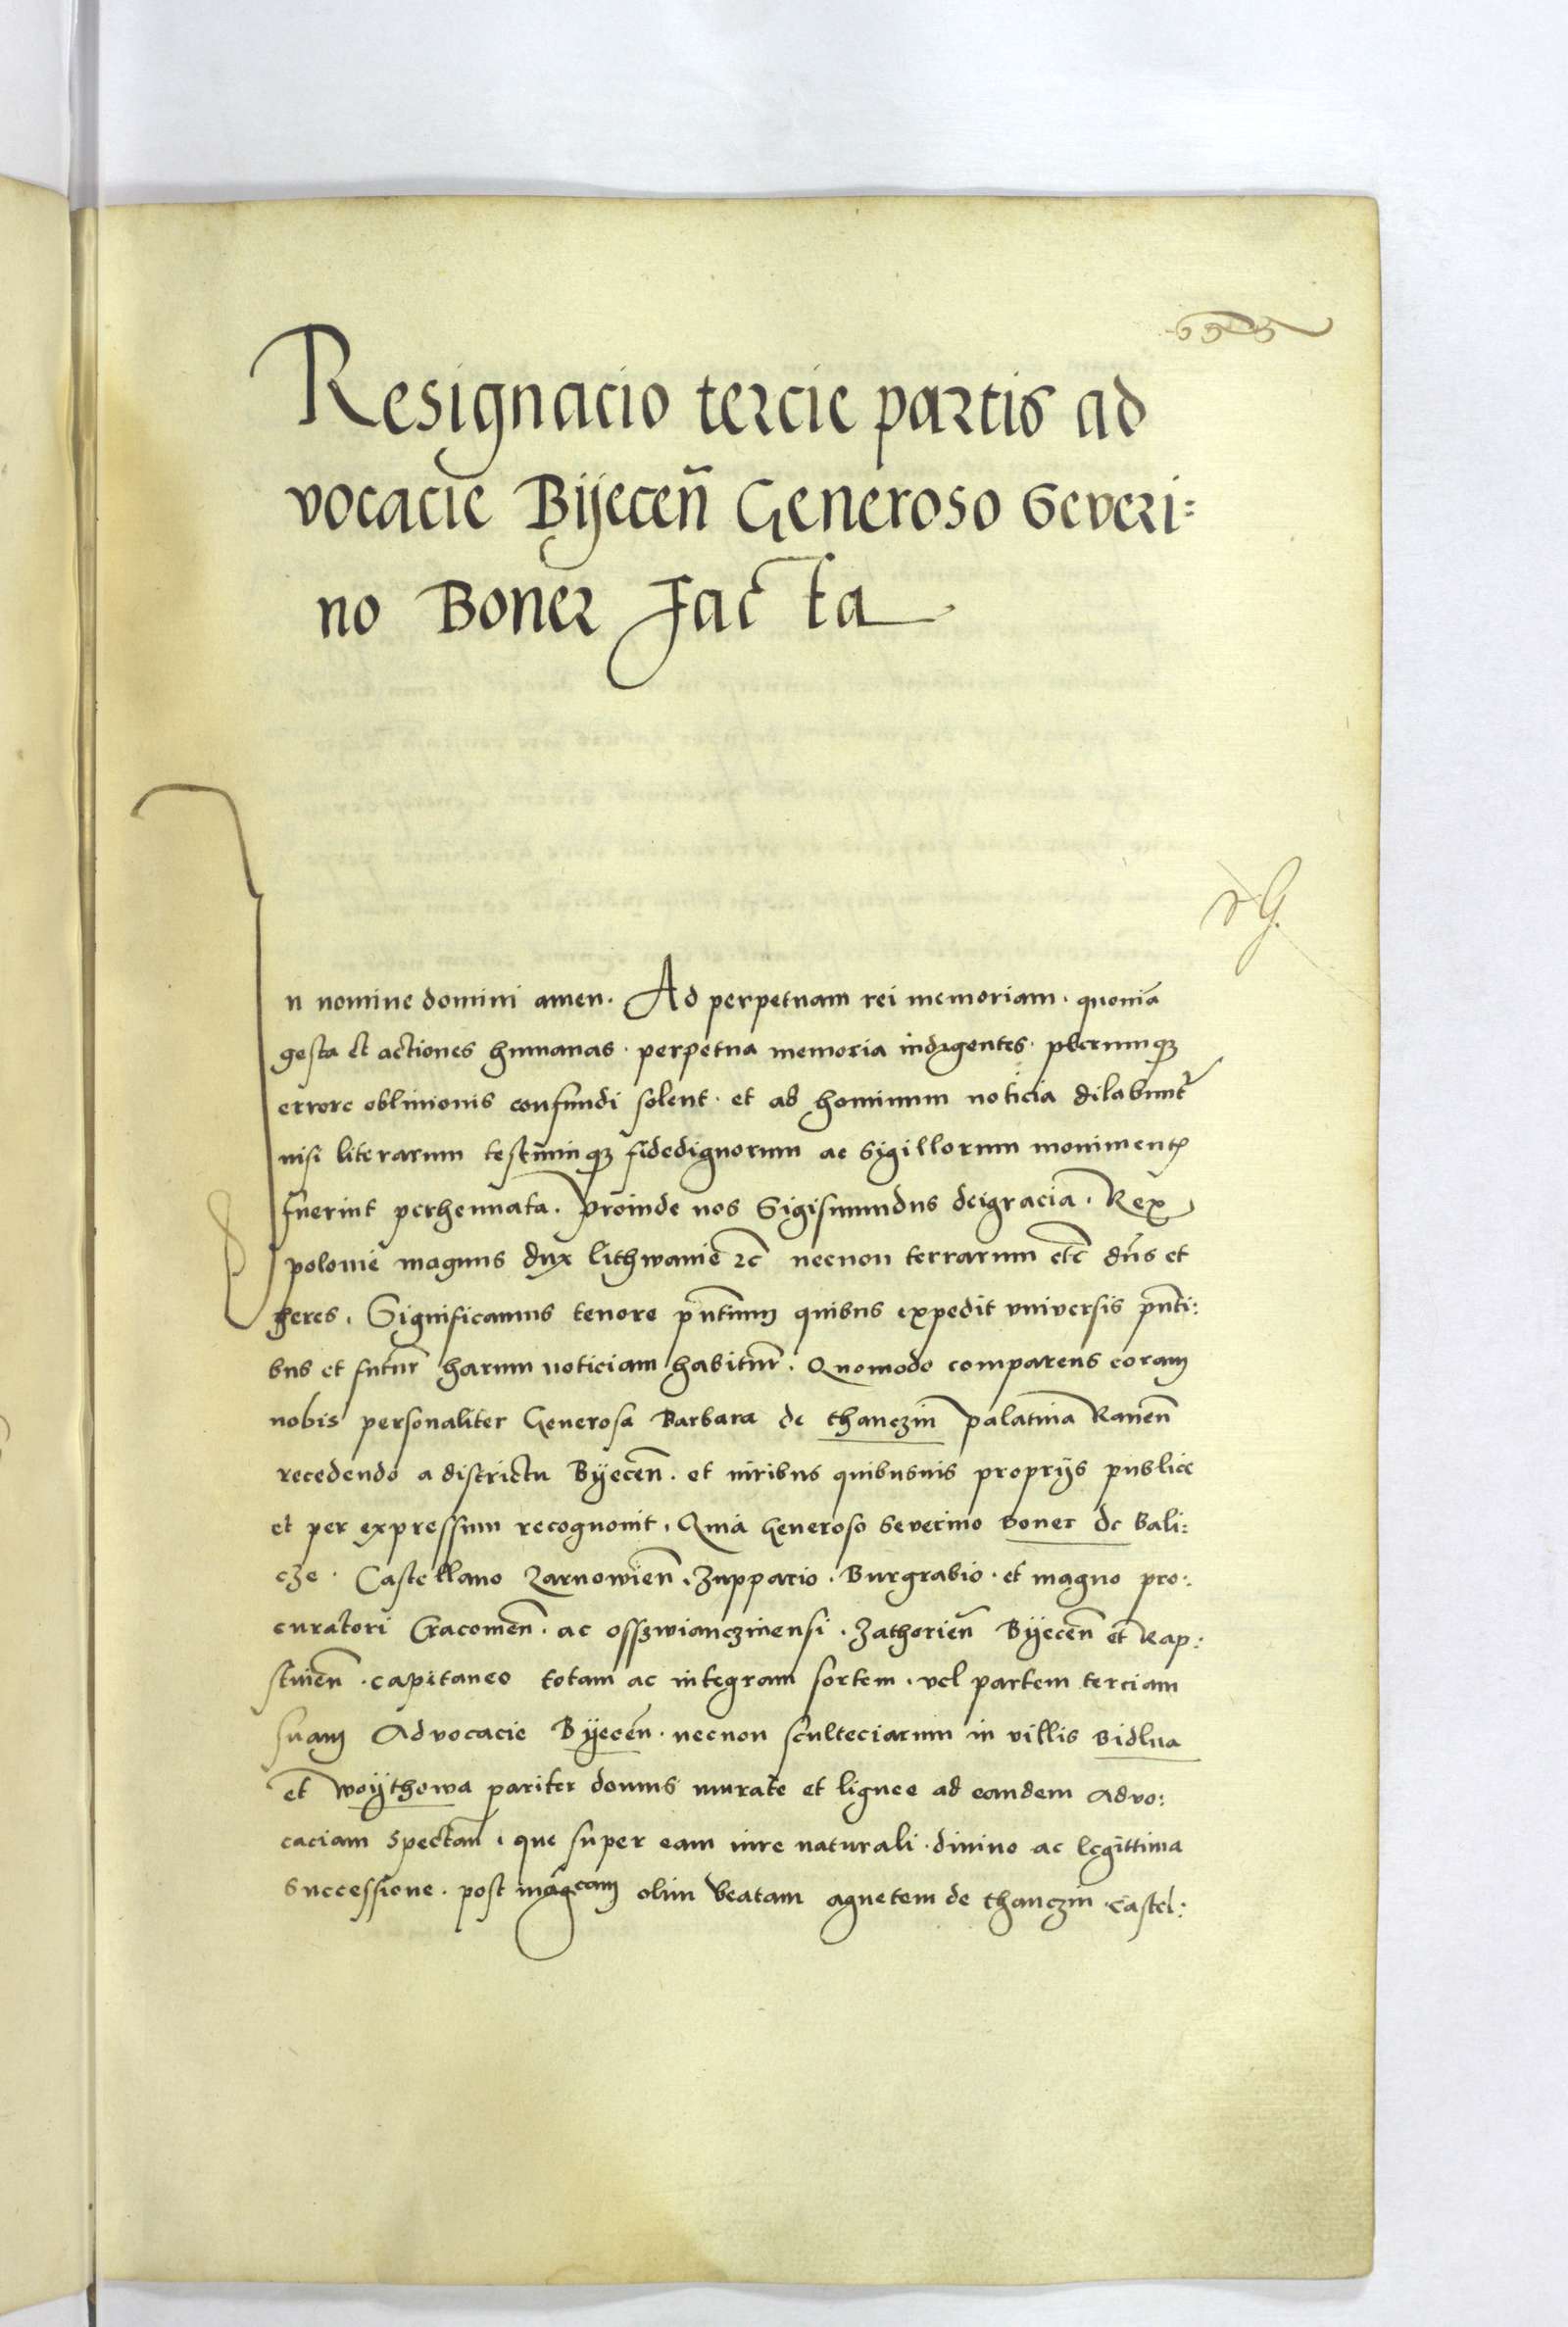 Resignacio tercie partis ad
vocacie Bÿeceñ Generoso Severi:
no Boner Facta
In nomine domini amen. Ad perpetuam rei memoriam. quoniã
gesta et actiones humanas. perpetua memoria indigentes. plerumqꝫ
errore oblivionis confundi solent. et ab hominum noticia dilabunt᷑
nisi literarum testiumqꝫ fidedignorum ac sigillorum monimentꝭ
fuerint perhennata. proinde nos Sigismundus dei gracia. Rex
polonie magnus dux lithwanie ⁊c̃ necnon terrarum etc̃ dñs et
heres. Significamus tenore pñtium quibus expedit universis pñti:
bus et futur̃ harum noticiam habitur̃. Quomodo comparens coram
nobis personaliter Generosa Barbara de thanczin palatina Raveñ
recedendo a districtu Bÿeceñ. et iuribus quibusuis proprÿs publice
et per expressum recognouit. Quia Generoso Severino Boner de Bali:
cze. Castellano Zarnowieñ. Zuppario. Burgrabio. et magno pro:
curatori Cracouieñ. ac osszwianczinensi. Zathorieñ Bÿeceñ et Rap:
stineñ. capitaneo totam ac integram sortem. vel partem terciam
suam Advocacie Bÿeceñ. necnon sculteciarum in villis Bidlna
et woÿthowa pariter domus murate et lignee ad eandem Advo:
caciam spectañ. que super eam iure naturali. diuino ac legittima
successione. post mãgcam olim beatam agnetem de thanczin. castel: